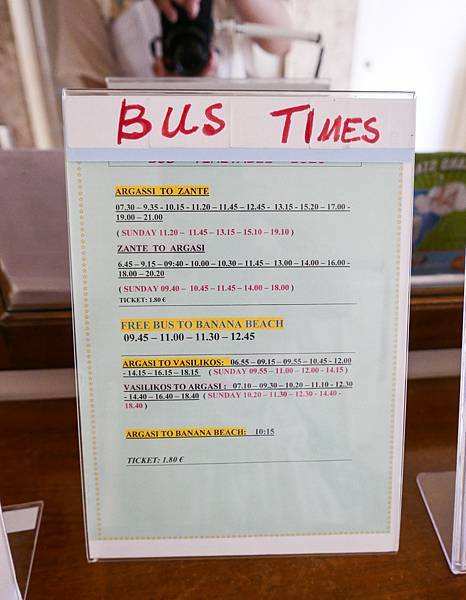 BUS TIMES
ARGASSI TO ZANTE
07.30 – 9.35 - 10.15 - 11.20 – 11.45 – 12.45 - 13.15 - 15.20 – 17.00 -
19.00 – 21.00
( SUNDAY 11.20 – 11.45 – 13.15 – 15.10 – 19.10 )
ZANTE TO ARGASI
6.45 – 9.15 – 09:40 - 10.00 – 10.30 – 11.45 – 13.00 – 14.00 – 16.00 -
18.00 – 20.20
( SUNDAY 09.40 – 10.45 – 11.45 – 14.00 – 18.00 )
TICKET: 1.80 €
FREE BUS TO BANANA BEACH
09.45 – 11.00 – 11.30 – 12.45
ARGASI TO VASILIKOS: 06.55 – 09.15 – 09.55 – 10.45 - 12.00
- 14.15 – 16.15 – 18.15 ( SUNDAY 09.55 – 11.00 – 12.00 - 14.15 )
VASILIKOS TO ARGASI : 07.10 – 09.30 – 10.20 – 11.10 - 12.30
- 14.40 – 16.40 – 18.40 ( SUNDAY 10.20 – 11.30 – 12.30 - 14.40 -
18.40 )
ARGASI TO BANANA BEACH: 10:15
TICKET: 1.80 €